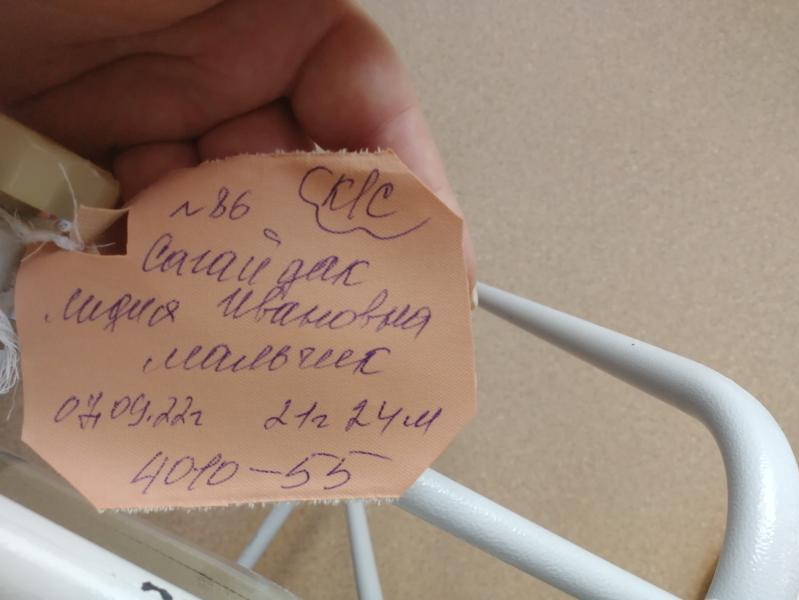 №86 К/С
Сагайдак
Лидия Ивановна
мальчик
07,09.22г 21г 24м
4010-55